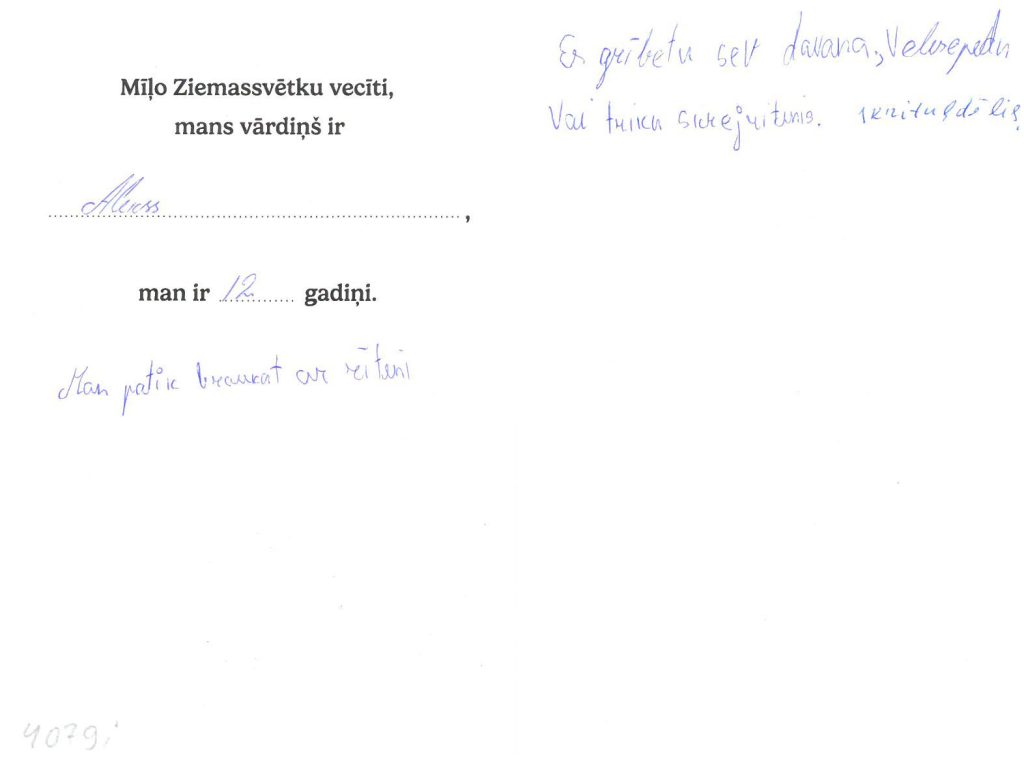 Mīļo Ziemassvētku vecīti,
mans vārdiņš ir
,
man ir 12 gadiņi.
Man patik braukat ar rītini
4079i
Es gribetu sev davana, Velosepedu
Vai triku skrejritinis. skrituļdēlis